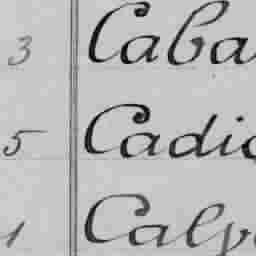 3 Caba
5 Cadic
1 Calv